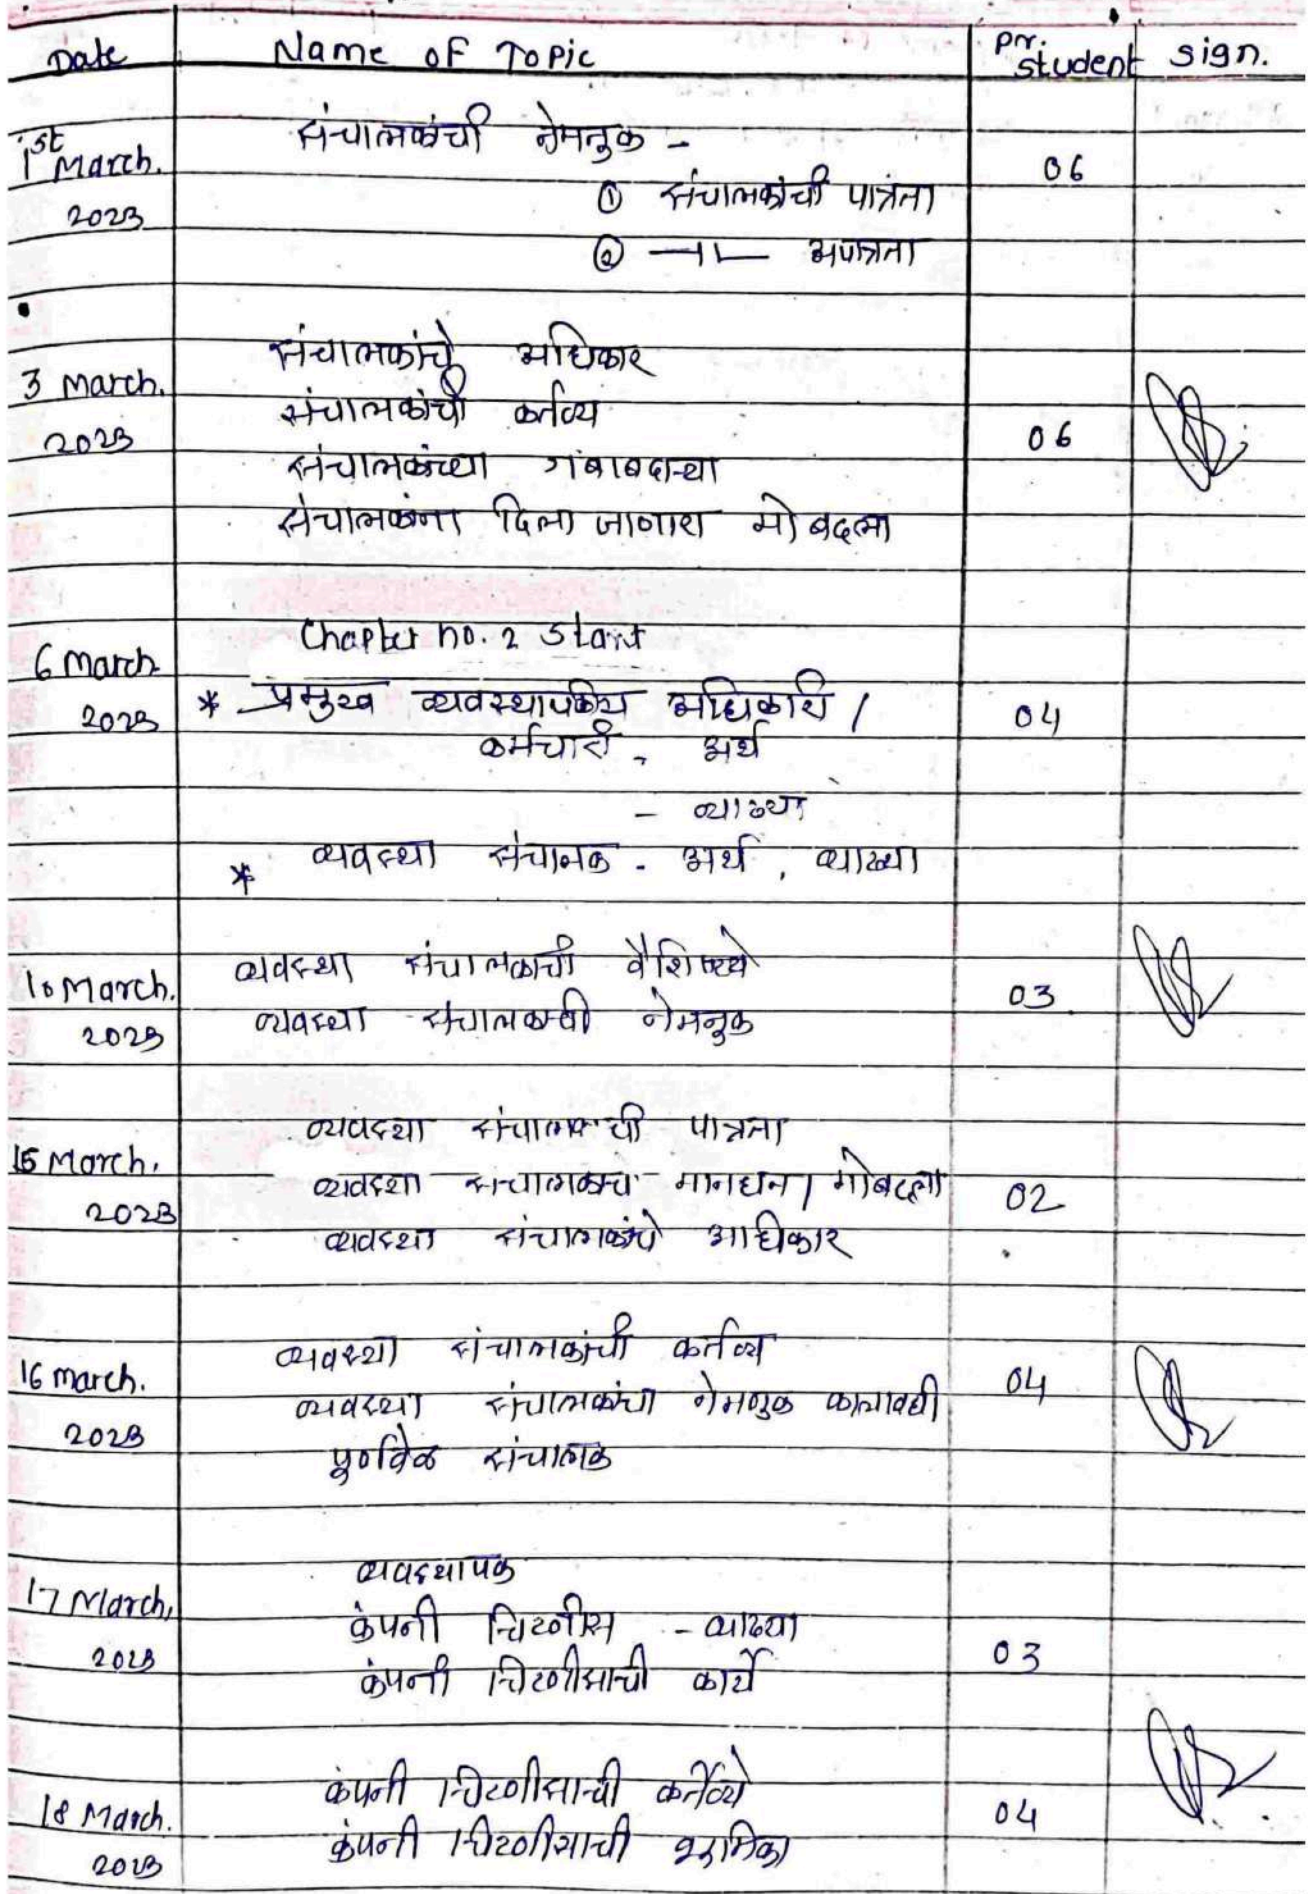 Date Name of Topic pr. student sign.
1st March. 2023 संचालकांची नेमनुक - 06
① संचालकांची पात्रता
② —ıı— अपात्रता
3 March. 2023 संचालकांचे अधिकार 06
संचालकांची कर्तव्य
संचालकांच्या जबाबदाऱ्या
संचालकांना दिला जाणारा मोबदला
6 March 2023 Chapter no. 2 Start 04
* प्रमुख व्यवस्थापकीय अधिकारी /
कर्मचारी - अर्थ
- व्याख्या
* व्यवस्था संचालक - अर्थ , व्याख्या
10 March. 2023 व्यवस्था संचालकाची वैशिष्ट्ये 03
व्यवस्था संचालकाची नेमनुक
15 March. 2023 व्यवस्था संचालकाची पात्रता 02
व्यवस्था संचालकाचे मानधन / मोबदला
व्यवस्था संचालकांचे अधिकार
16 March. 2023 व्यवस्था संचालकांची कर्तव्य 04
व्यवस्था संचालकांचा नेमणुक कालावधी
पूर्णवेळ संचालक
17 March, 2023 व्यवस्थापक 03
कंपनी चिटणीस - व्याख्या
कंपनी चिटणीसाची कार्ये
18 March. 2023 कंपनी चिटणीसाची कर्तव्ये 04
कंपनी चिटणीसाची भूमिका